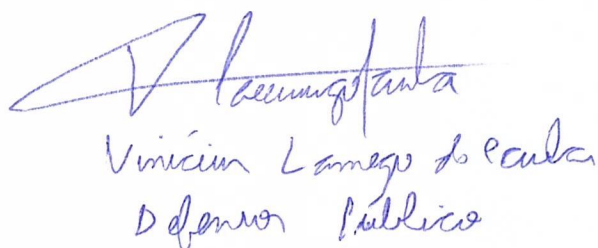 Vinícius Lamego de Paula
Defensor Público